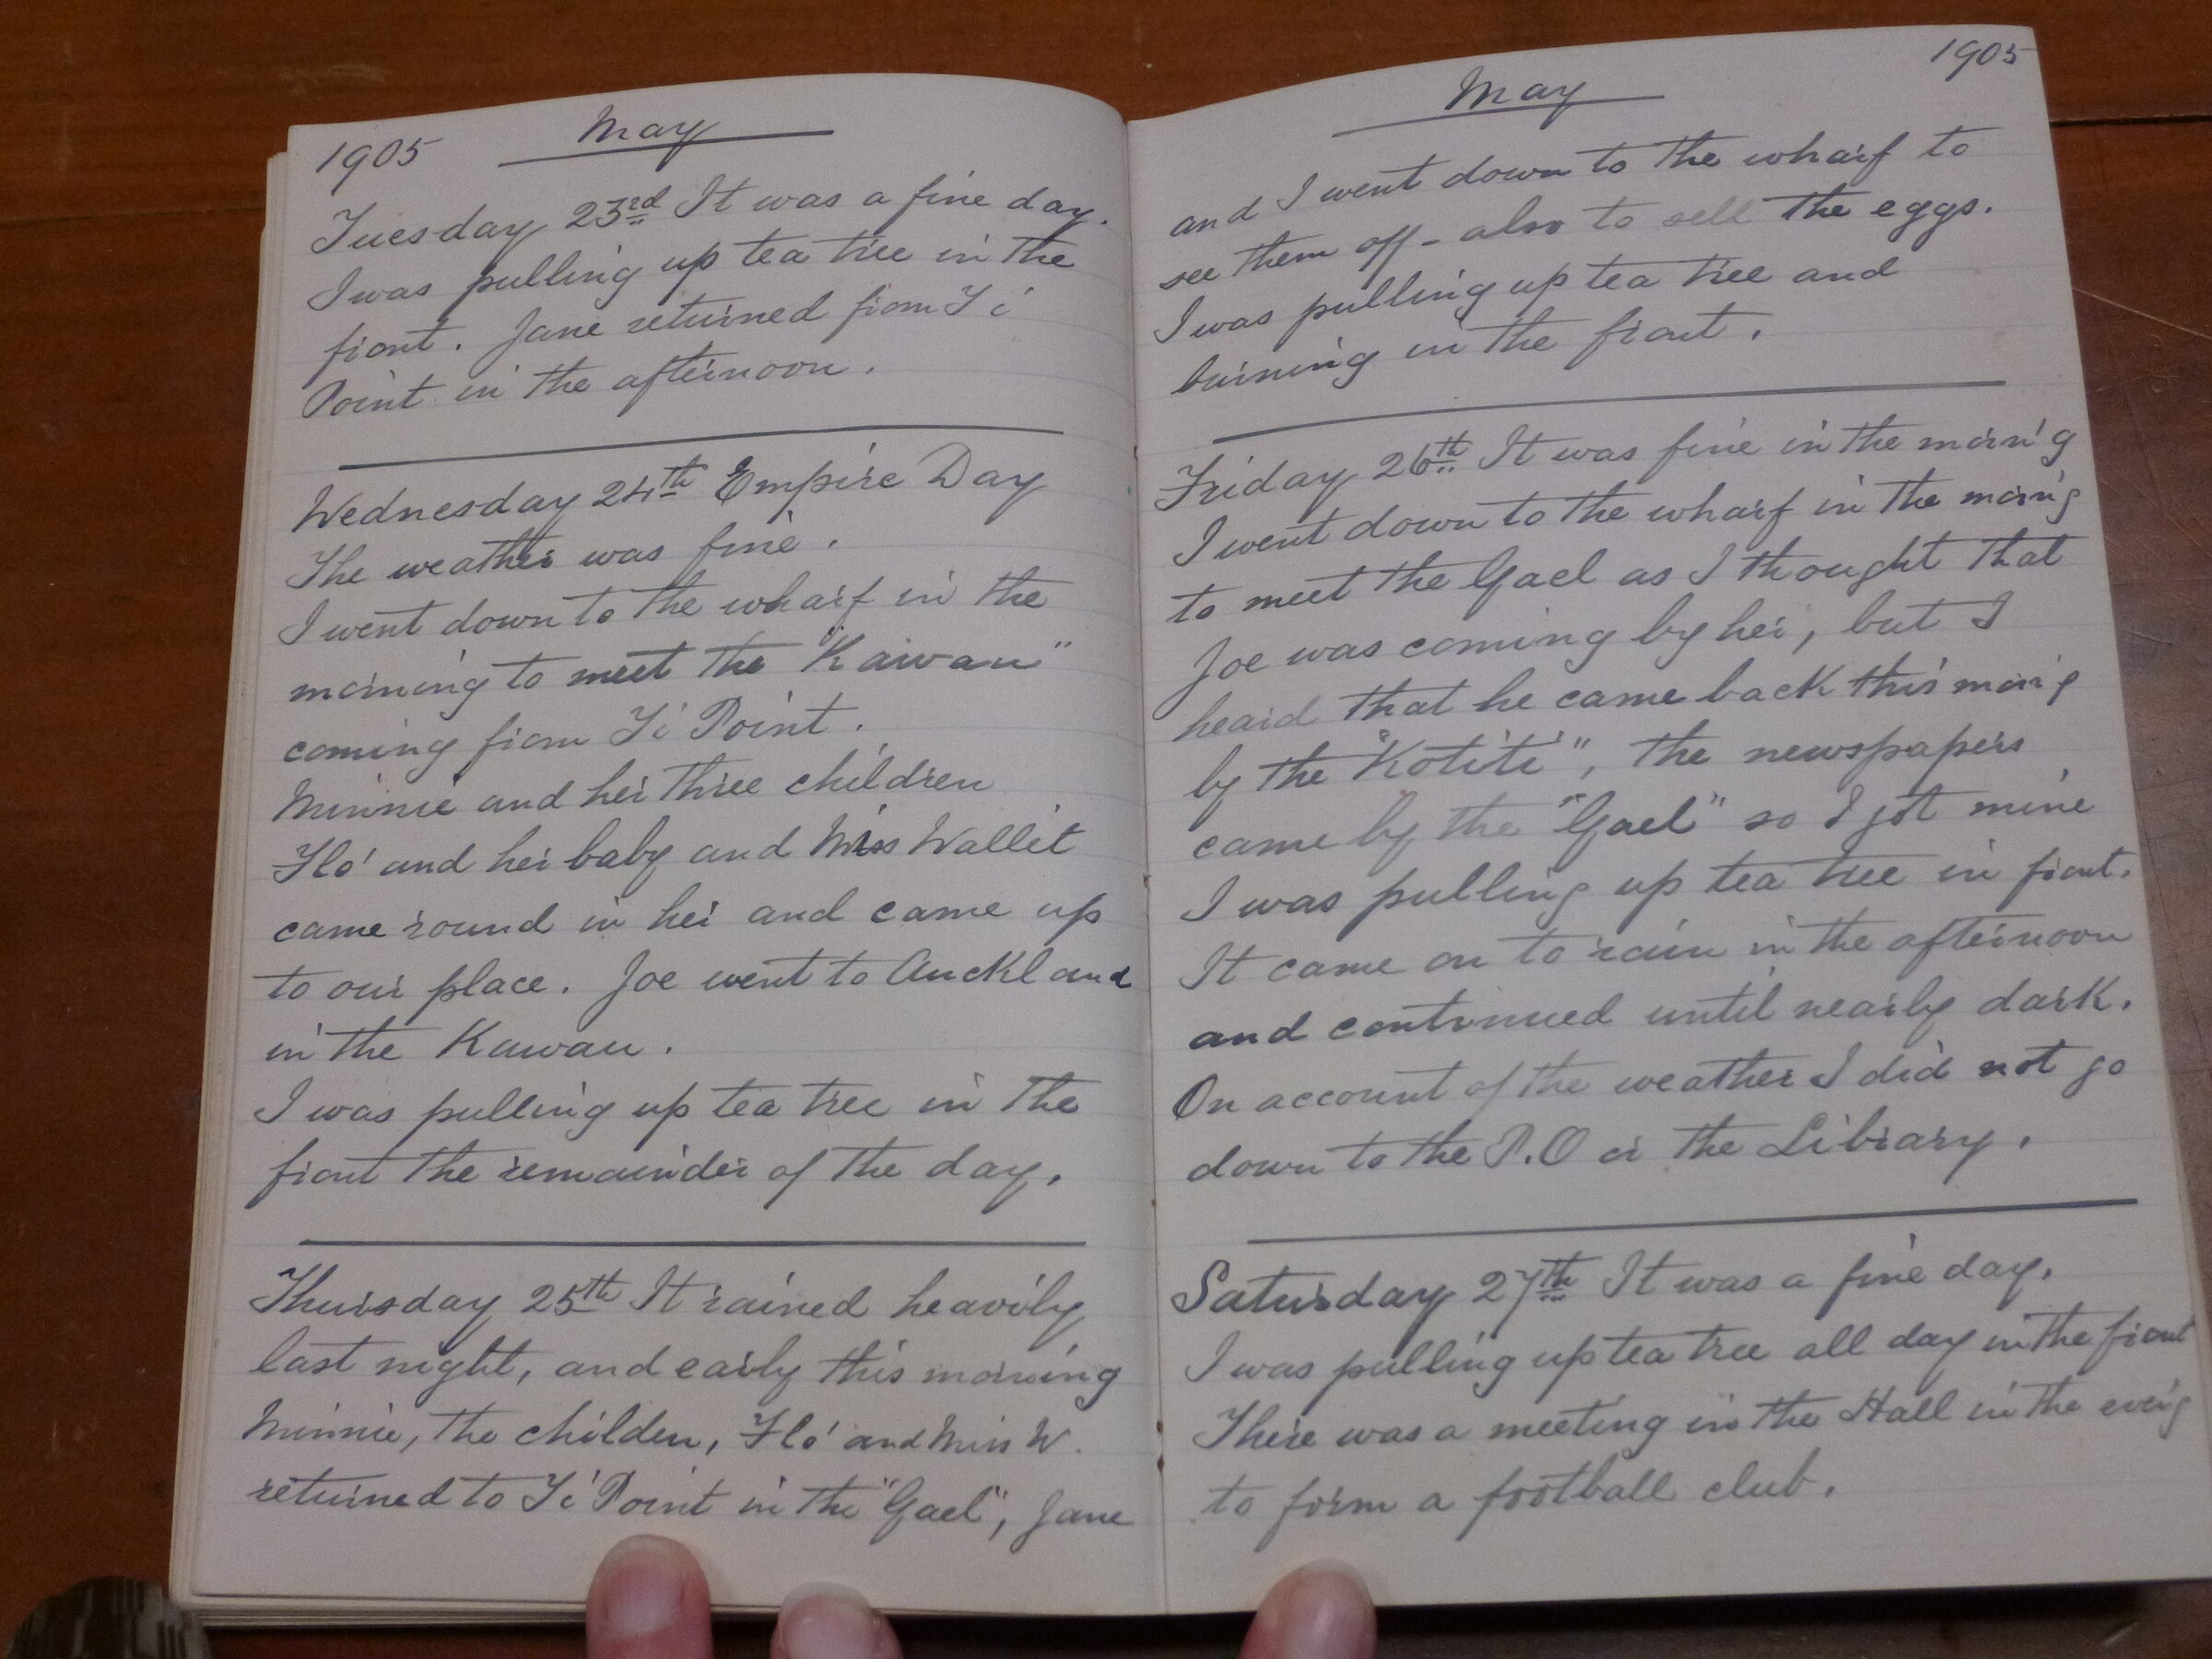 1905 May
Tuesday 23rd It was a fine day.
I was pulling up tea tree in the
front. Jane returned from Ti
Point in the afternoon.
Wednesday 24th Empire Day
The weather was fine.
I went down to the wharf in the
morning to meet the "Kawau"
coming from Ti Point.
Minnie and her three children
Flo' and her baby and Miss Wallit
came round in her and came up
to our place. Joe went to Auckland
in the Kawau.
I was pulling up tea tree in the
front the remainder of the day.
Thursday 25th It rained heavily
last night, and early this morning
Minnie, the childen, Flo' and Miss W.
returned to Ti Point in the "Gael", Jane
May 1905
and I went down to the wharf to
see them off - also to sell the eggs.
I was pulling up tea tree and
burning in the front.
Friday 26th It was fine in the morn'g
I went down to the wharf in the morn'g
to meet the Gael as I thought that
Joe was coming by her, but I
heard that he came back this morn'g
by the "Kotiti", the newspapers
came by the "Gael" so I got mine
I was pulling up tea tree in front.
It came on to rain in the afternoon
and continued until nearly dark.
On account of the weather I did not go
down to the P.O or the Library.
Saturday 27th It was a fine day.
I was pulling up tea tree all day in the front
There was a meeting in the Hall in the even'g
to form a football club.